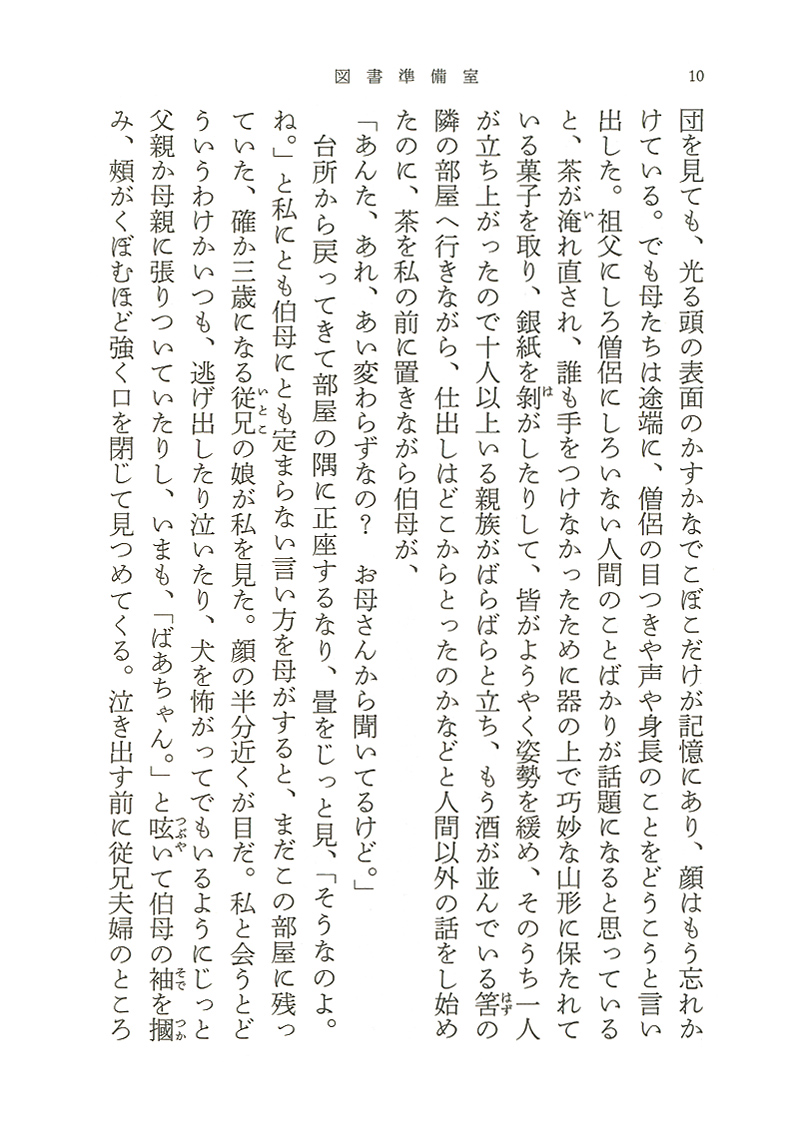 図書準備室
10
団を見ても、光る頭の表面のかすかなでこぼこだけが記憶にあり、顔はもう忘れか
けている。でも母たちは途端に、僧侶の目つきや声や身長のことをどうこうと言い
出した。祖父にしろ僧侶にしろいない人間のことばかりが話題になると思っている
と、茶が淹れ直され、誰も手をつけなかったために器の上で巧妙な山形に保たれて
いる菓子を取り、銀紙を剝がしたりして、皆がようやく姿勢を緩め、そのうち一人
が立ち上がったので十人以上いる親族がばらばらと立ち、もう酒が並んでいる筈の
隣の部屋へ行きながら、仕出しはどこからとったのかなどと人間以外の話をし始め
たのに、茶を私の前に置きながら伯母が、
「あんた、あれ、あい変わらずなの？　お母さんから聞いてるけど。」
台所から戻ってきて部屋の隅に正座するなり、畳をじっと見、「そうなのよ。
ね。」と私にとも伯母にとも定まらない言い方を母がすると、まだこの部屋に残っ
ていた、確か三歳になる従兄の娘が私を見た。顔の半分近くが目だ。私と会うとど
ういうわけかいつも、逃げ出したり泣いたり、犬を怖がってでもいるようにじっと
父親か母親に張りついていたりし、いまも、「ばあちゃん。」と呟いて伯母の袖を摑
み、頰がくぼむほど強く口を閉じて見つめてくる。泣き出す前に従兄夫婦のところ